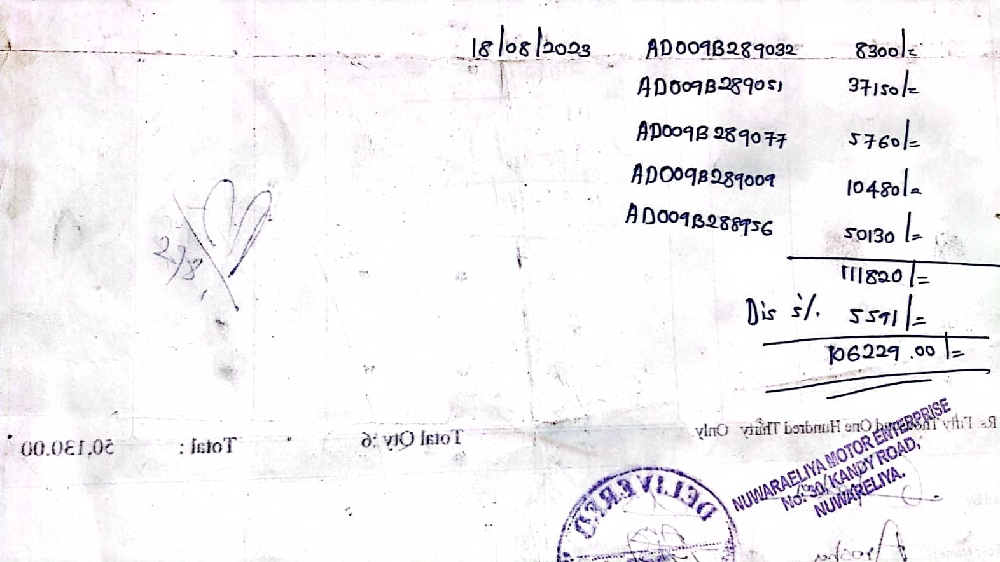 18/08/2023 AD009B289032 8300/=
AD009B289051 37150/=
AD009B289077 5760/=
AD009B289009 10480/=
AD009B288956 50130/=
111820/=
Dis 5%. 5591/=
106229.00/=
27/8
Rs. Fifty Thousand One Hundred Thirty Only
Total Qty : 6 Total : 50,130.00
NUWARAELIYA MOTOR ENTERPRISE
No: 30/ KANDY ROAD,
NUWARELIYA.
DELIVERED